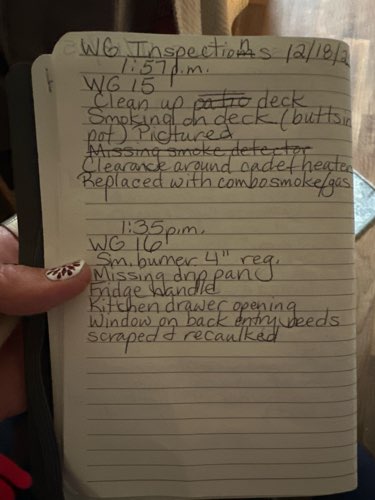 WG Inspections 12/18/2
1:57 p.m.
WG 15
Clean up patio deck
Smoking on deck (butts in
pot) Pictured
Missing smoke detector
Clearance around cadet heater
Replaced with combo smoke/gas
1:35 p.m.
WG 16
Sm. burner 4" reg.
Missing drip pan
Fridge handle
Kitchen drawer opening
Window on back entry needs
scraped & recaulked